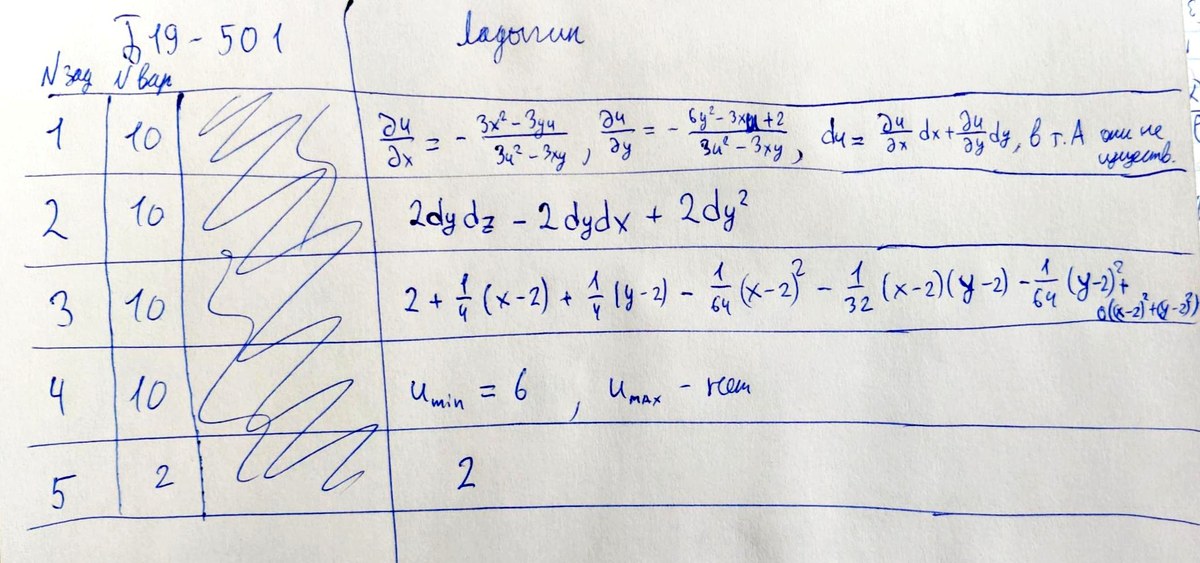 Б19-501 Ладыгин
N зад N вар
1 10 ∂u/∂x = - (3x²-3yu)/(3u²-3xy), ∂u/∂y = - (6y²-3xu+2)/(3u²-3xy), du = ∂u/∂x dx + ∂u/∂y dy, в т. A они не
существ.
2 10 2dydz - 2dydx + 2dy²
3 10 2 + 1/4 (x-2) + 1/4 (y-2) - 1/64 (x-2)² - 1/32 (x-2)(y-2) - 1/64 (y-2)² +
o((x-2)²+(y-2)²)
4 10 u min = 6, u max - нет
5 2 2